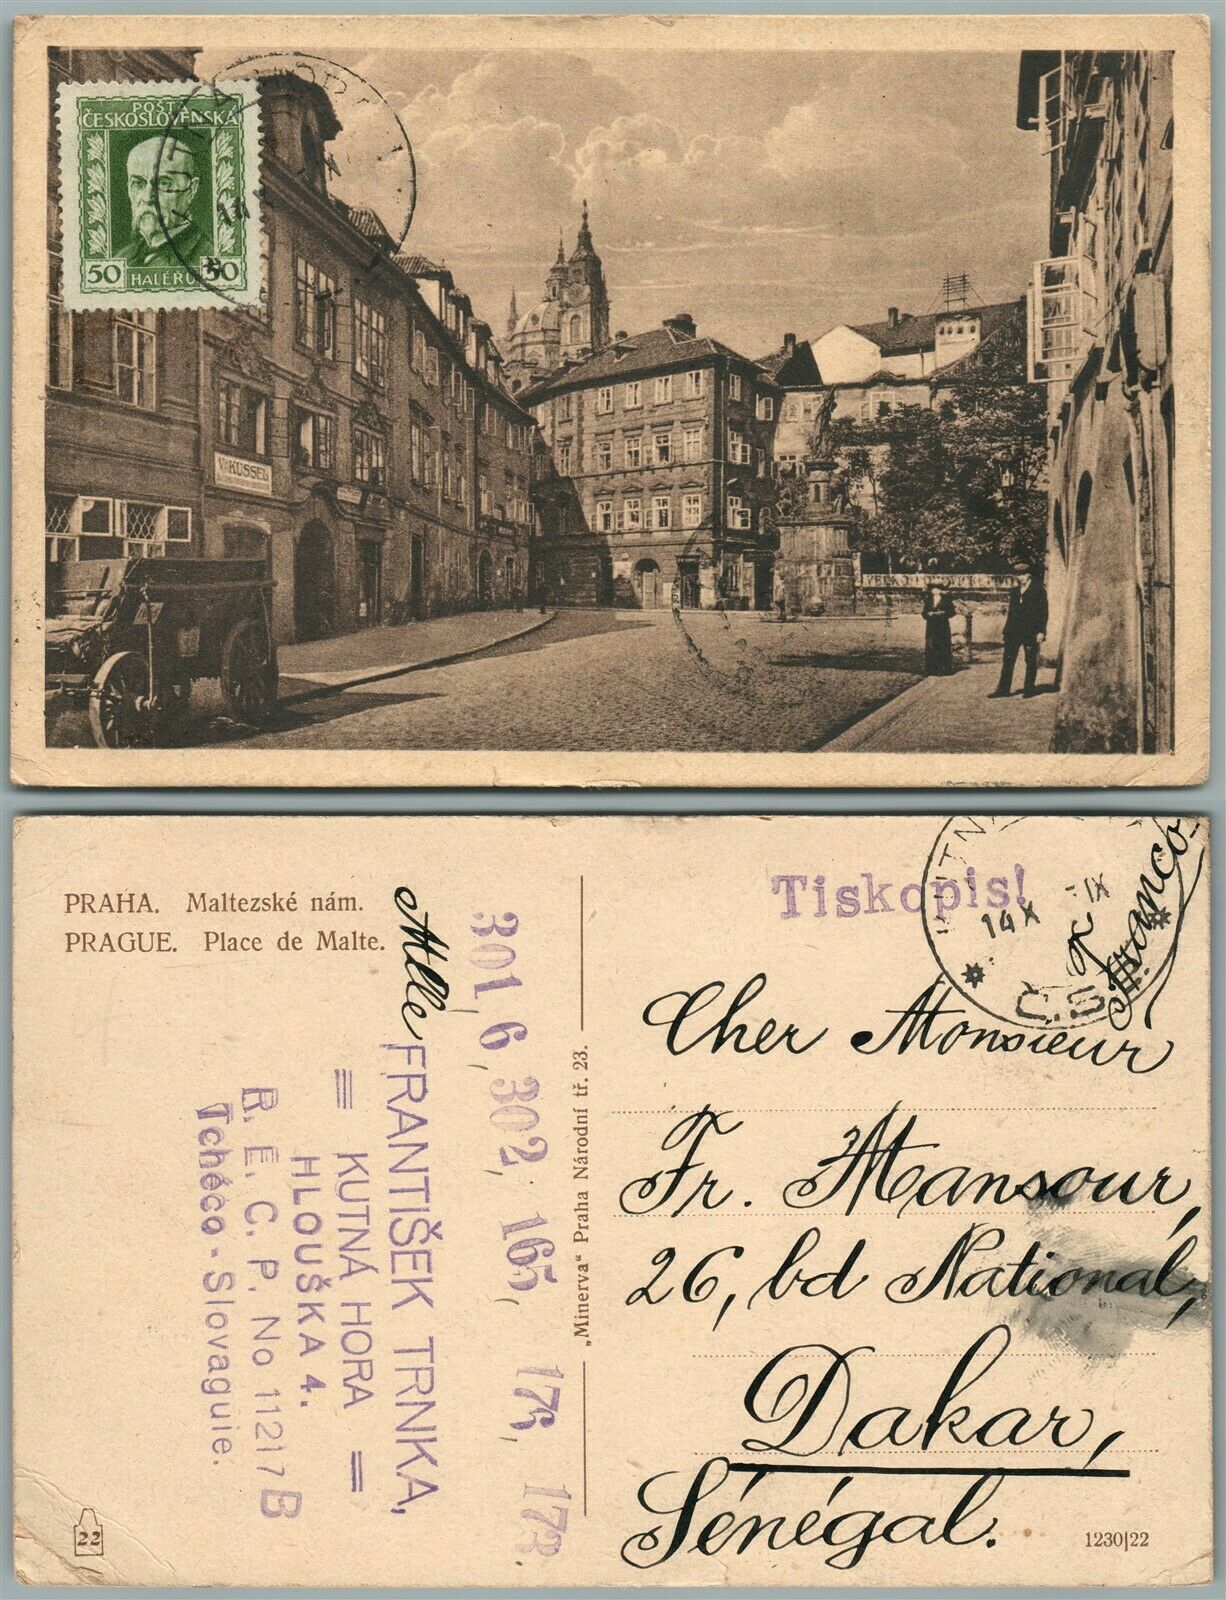 POŠTA
ČESKOSLOVENSKÁ
50 HALÉŘŮ 50
KUTNÁ HORA 1
V. KÜSSEL
PRAHA. Maltezské nám.
PRAGUE. Place de Malte.
Mlle FRANTIŠEK TRNKA,
= KUTNÁ HORA =
HLOUŠKA 4.
B. E. C. P. No 11217 B
Tchéco-Slovaguie.
301, 6, 302, 165, 176, 173.
„Minerva" Praha Národní tř. 23.
22
Tiskopis!
14 X
Č.S.
Franco
Cher Monsieur
Fr. Mansour,
26, bd National,
Dakar,
Sénégal.
1230|22